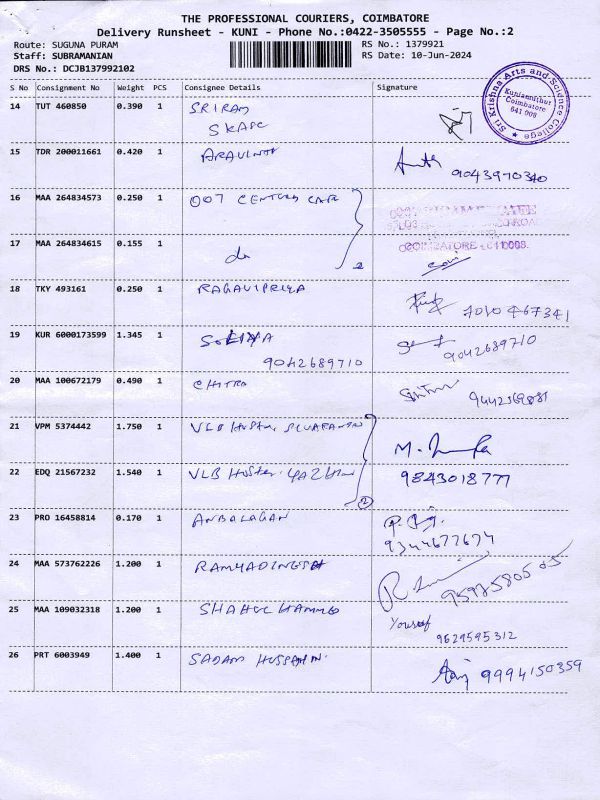 THE PROFESSIONAL COURIERS, COIMBATORE
Delivery Runsheet - KUNI - Phone No.:0422-3505555 - Page No.:2
Route: SUGUNA PURAM
RS No.: 1379921
Staff: SUBRAMANIAN
RS Date: 10-Jun-2024
DRS No.: DCJB137992102
S No Consignment No Weight PCS Consignee Details Signature
14 TUT 460850 0.390 1 SRIRAM
SKASC
Sri Krishna Arts and Science College
Kuniamuthur
Coimbatore
641 008
15 TDR 200011661 0.420 1 ARAVINTH
9043970340
16 MAA 264834573 0.250 1 007 CENTURY CAR
17 MAA 264834615 0.155 1 do
2
COIMBATORE
18 TKY 493161 0.250 1 RAGAVIPRIYA
7010467341
19 KUR 6000173599 1.345 1
9042689710
9042689710
20 MAA 100672179 0.490 1 CHITRA
21 VPM 5374442 1.750 1 VLB
22 EDQ 21567232 1.540 1 VLB Hostel
2
9843018777
23 PRO 16458814 0.170 1 ANBALAGAN
9344677674
24 MAA 573762226 1.200 1 RAMYADINESH
9597580505
25 MAA 109032318 1.200 1 SHAHUL HAMMED
Yousoof
9629595312
26 PRT 6003949 1.400 1 SADAM HUSSAIN.
9994150359